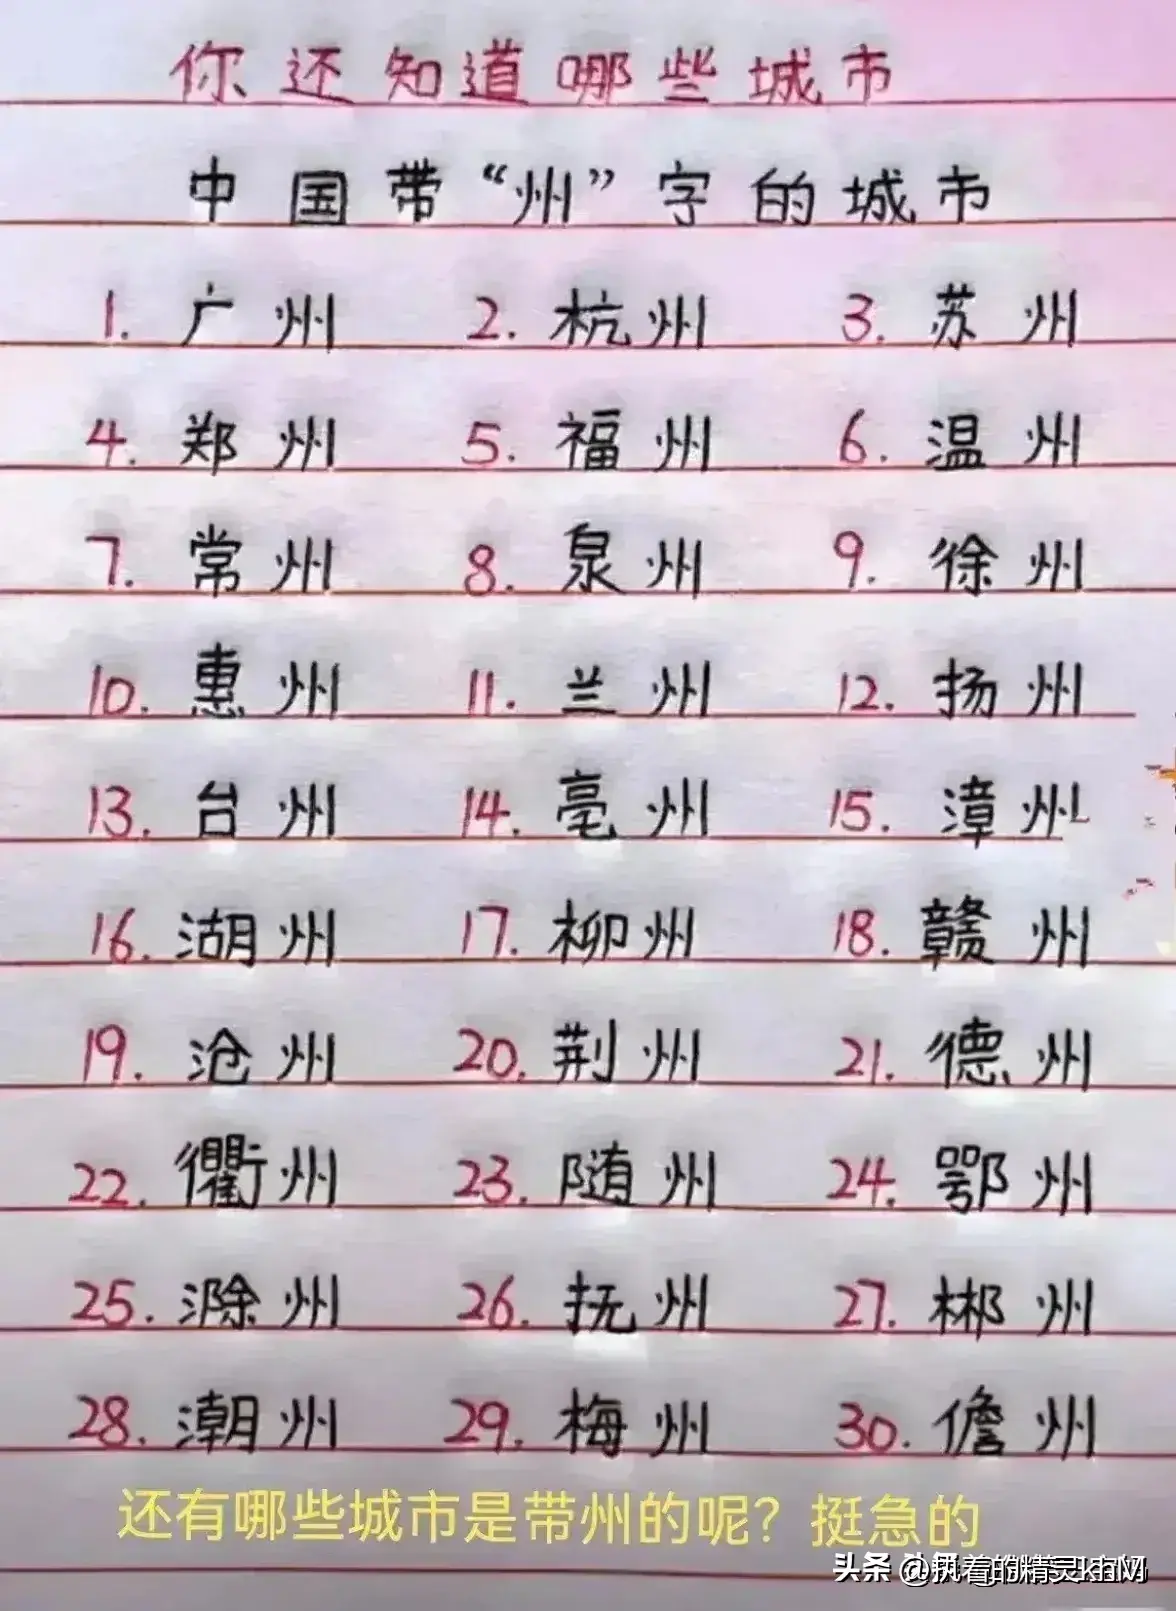 你还知道哪些城市
中国带“州”字的城市
1. 广州 2. 杭州 3. 苏州
4. 郑州 5. 福州 6. 温州
7. 常州 8. 泉州 9. 徐州
10. 惠州 11. 兰州 12. 扬州
13. 台州 14. 亳州 15. 漳州
16. 湖州 17. 柳州 18. 赣州
19. 沧州 20. 荆州 21. 德州
22. 衢州 23. 随州 24. 鄂州
25. 滁州 26. 抚州 27. 郴州
28. 潮州 29. 梅州 30. 儋州
还有哪些城市是带州的呢？挺急的
头条 @执着的精灵